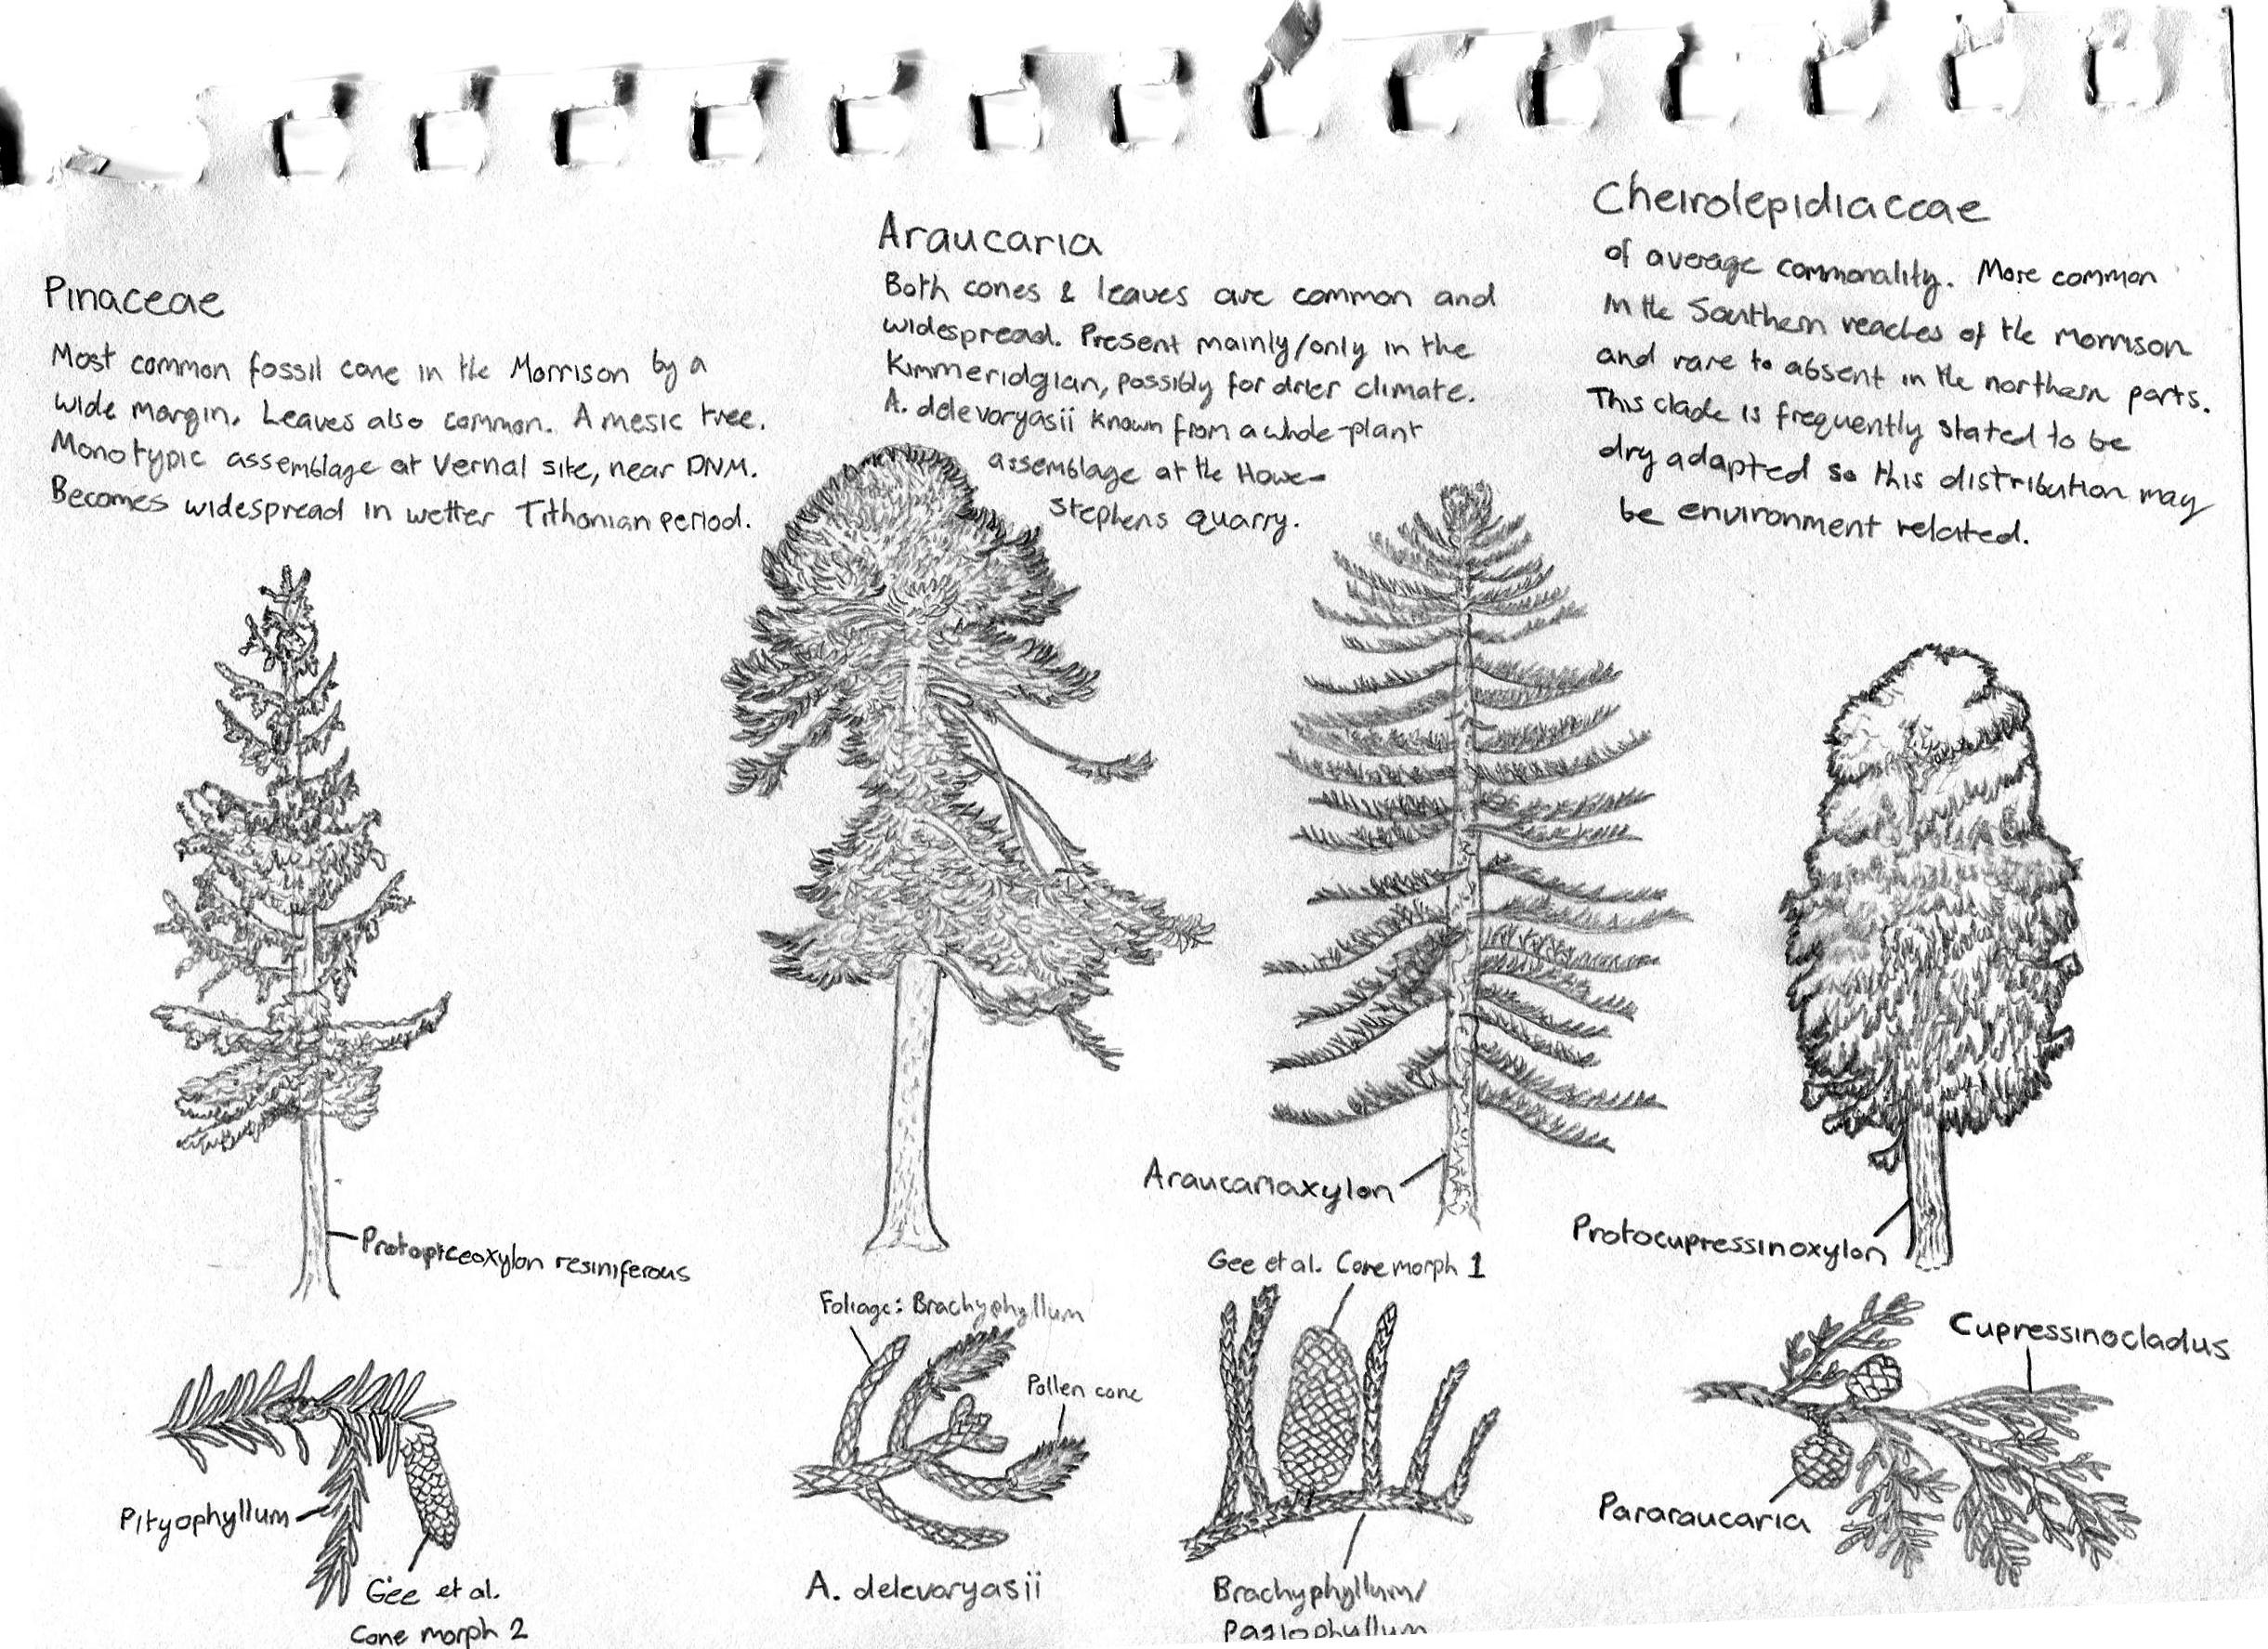 Pinaceae
Most common fossil cone in the Morrison by a
wide margin. Leaves also common. A mesic tree.
Monotypic assemblage at Vernal site, near DNM.
Becomes widespread in wetter Tithonian period.
Araucaria
Both cones & leaves are common and
widespread. Present mainly/only in the
Kimmeridgian, possibly for drier climate.
A. delevoryasii known from a whole-plant
assemblage at the Howe-
Stephens quarry.
Cheirolepidiaceae
of average commonality. More common
in the Southern reaches of the Morrison
and rare to absent in the northern parts.
This clade is frequently stated to be
dry adapted so this distribution may
be environment related.
Protopiceoxylon resiniferous
Araucariaxylon
Protocupressinoxylon
Pityophyllum
Gee et al.
Cone morph 2
Foliage: Brachyphyllum
Pollen cone
A. delevoryasii
Gee et al. Cone morph 1
Brachyphyllum/
Pagiophyllum
Cupressinocladus
Pararaucaria